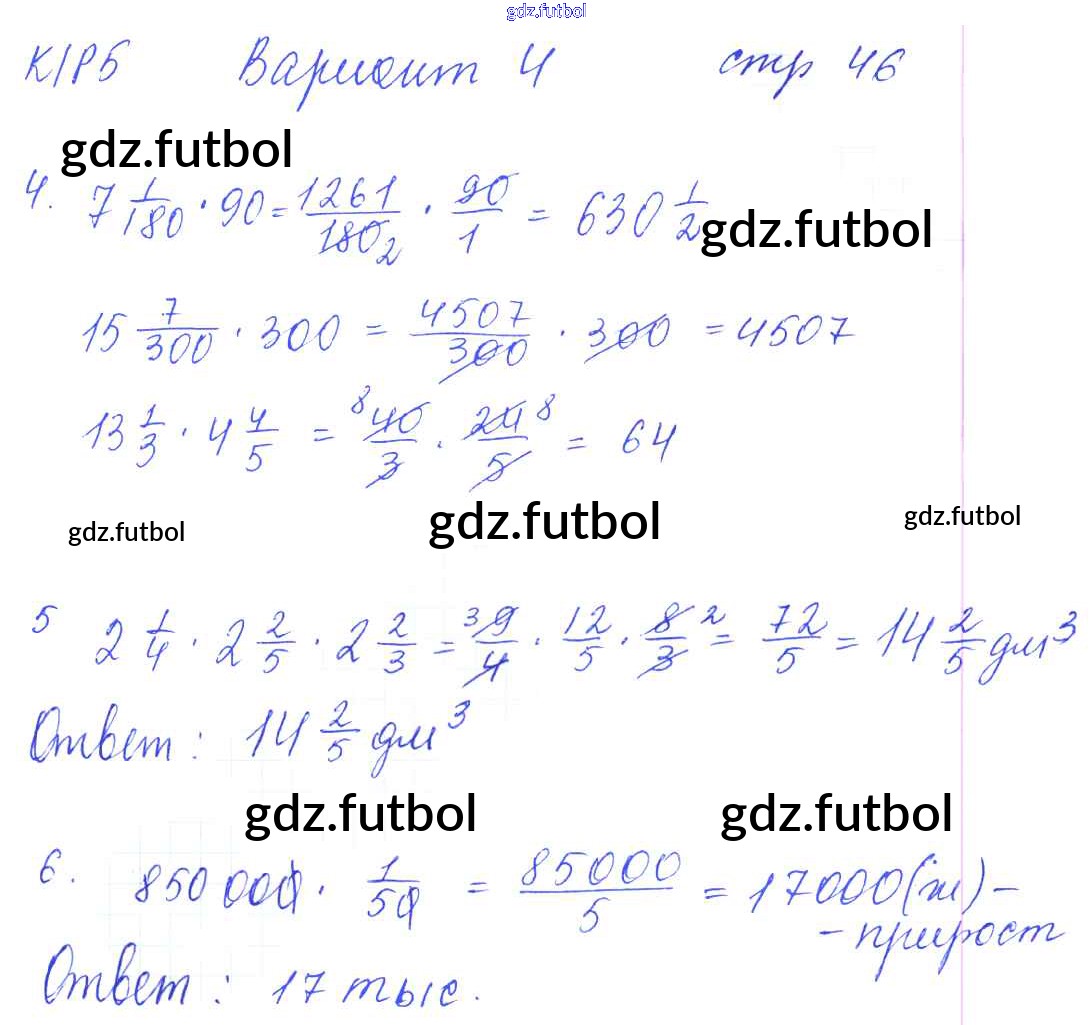 gdz.futbol
К/Р6 Вариант 4 стр 46
gdz.futbol
4. 7 1/180 · 90 = 1261/180 2 · 90/1 = 630 1/2
gdz.futbol
15 7/300 · 300 = 4507/300 · 300 = 4507
13 1/3 · 4 4/5 = 8 40/3 · 24 8/5 = 64
gdz.futbol gdz.futbol gdz.futbol
5 2 1/4 · 2 2/5 · 2 2/3 = 3 9/4 · 12/5 · 8/3 2 = 72/5 = 14 2/5 дм³
Ответ: 14 2/5 дм³
gdz.futbol gdz.futbol
6. 850 000 · 1/50 = 85000/5 = 17000 (ж) –
– прирост
Ответ: 17 тыс.